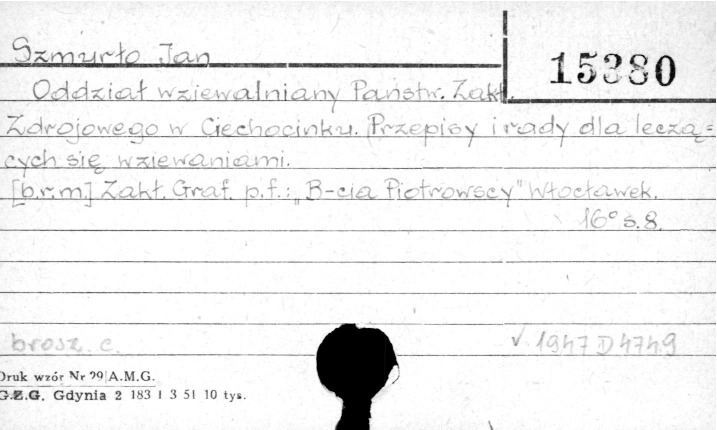 Szmurło Jan
15380
Oddział wziewalniany Państw. Zakł.
Zdrojowego w Ciechocinku. Przepisy i rady dla leczą=
cych się wziewaniami.
[b.r.m] Zakł. Graf. p.f.: „B-cia Piotrowscy" Włocławek.
16° s.8.
brosz. c.
√ 1947 D 4749
Druk wzór Nr 29 A.M.G.
G.Z.G. Gdynia 2 183 1 3 51 10 tys.